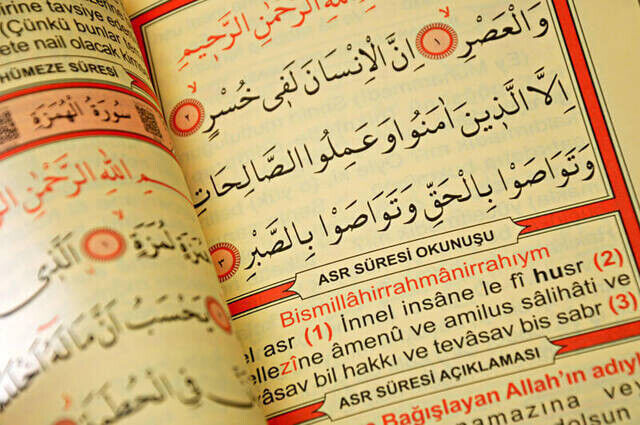 بِسْمِ اللّٰهِ الرَّحْمٰنِ الرَّحٖيمِ
وَالْعَصْرِ ١ اِنَّ الْاِنْسَانَ لَفٖى خُسْرٍ ٢
اِلَّا الَّذٖينَ اٰمَنُوا وَعَمِلُوا الصَّالِحَاتِ
وَتَوَاصَوْا بِالْحَقِّ وَتَوَاصَوْا بِالصَّبْرِ ٣
ASR SÛRESİ OKUNUŞU
Bismillâhirrahmânirrahıym
el asr (1) İnnel insâne le fî husr (2)
ellezîne âmenû ve amilus sâlihâti ve
vâsav bil hakkı ve tevâsav bis sabr (3)
ASR SÛRESİ AÇIKLAMASI
Bağışlayan Allah'ın adıyl
namazına ve
dolsun
irine tavsiye ede
(Çünkü bunlar
ete nail olacak kim
HÜMEZE SÛRESİ
سُورَةُ الْهُمَزَةِ
اللّٰهِ الرَّحْمٰنِ الرَّ
لُمَزَةٍ ١ اَلَّذٖى
يَحْسَبُ اَنَّ مَالَهُٓ اَخْلَدَ
فِى الْحُطَمَةِ